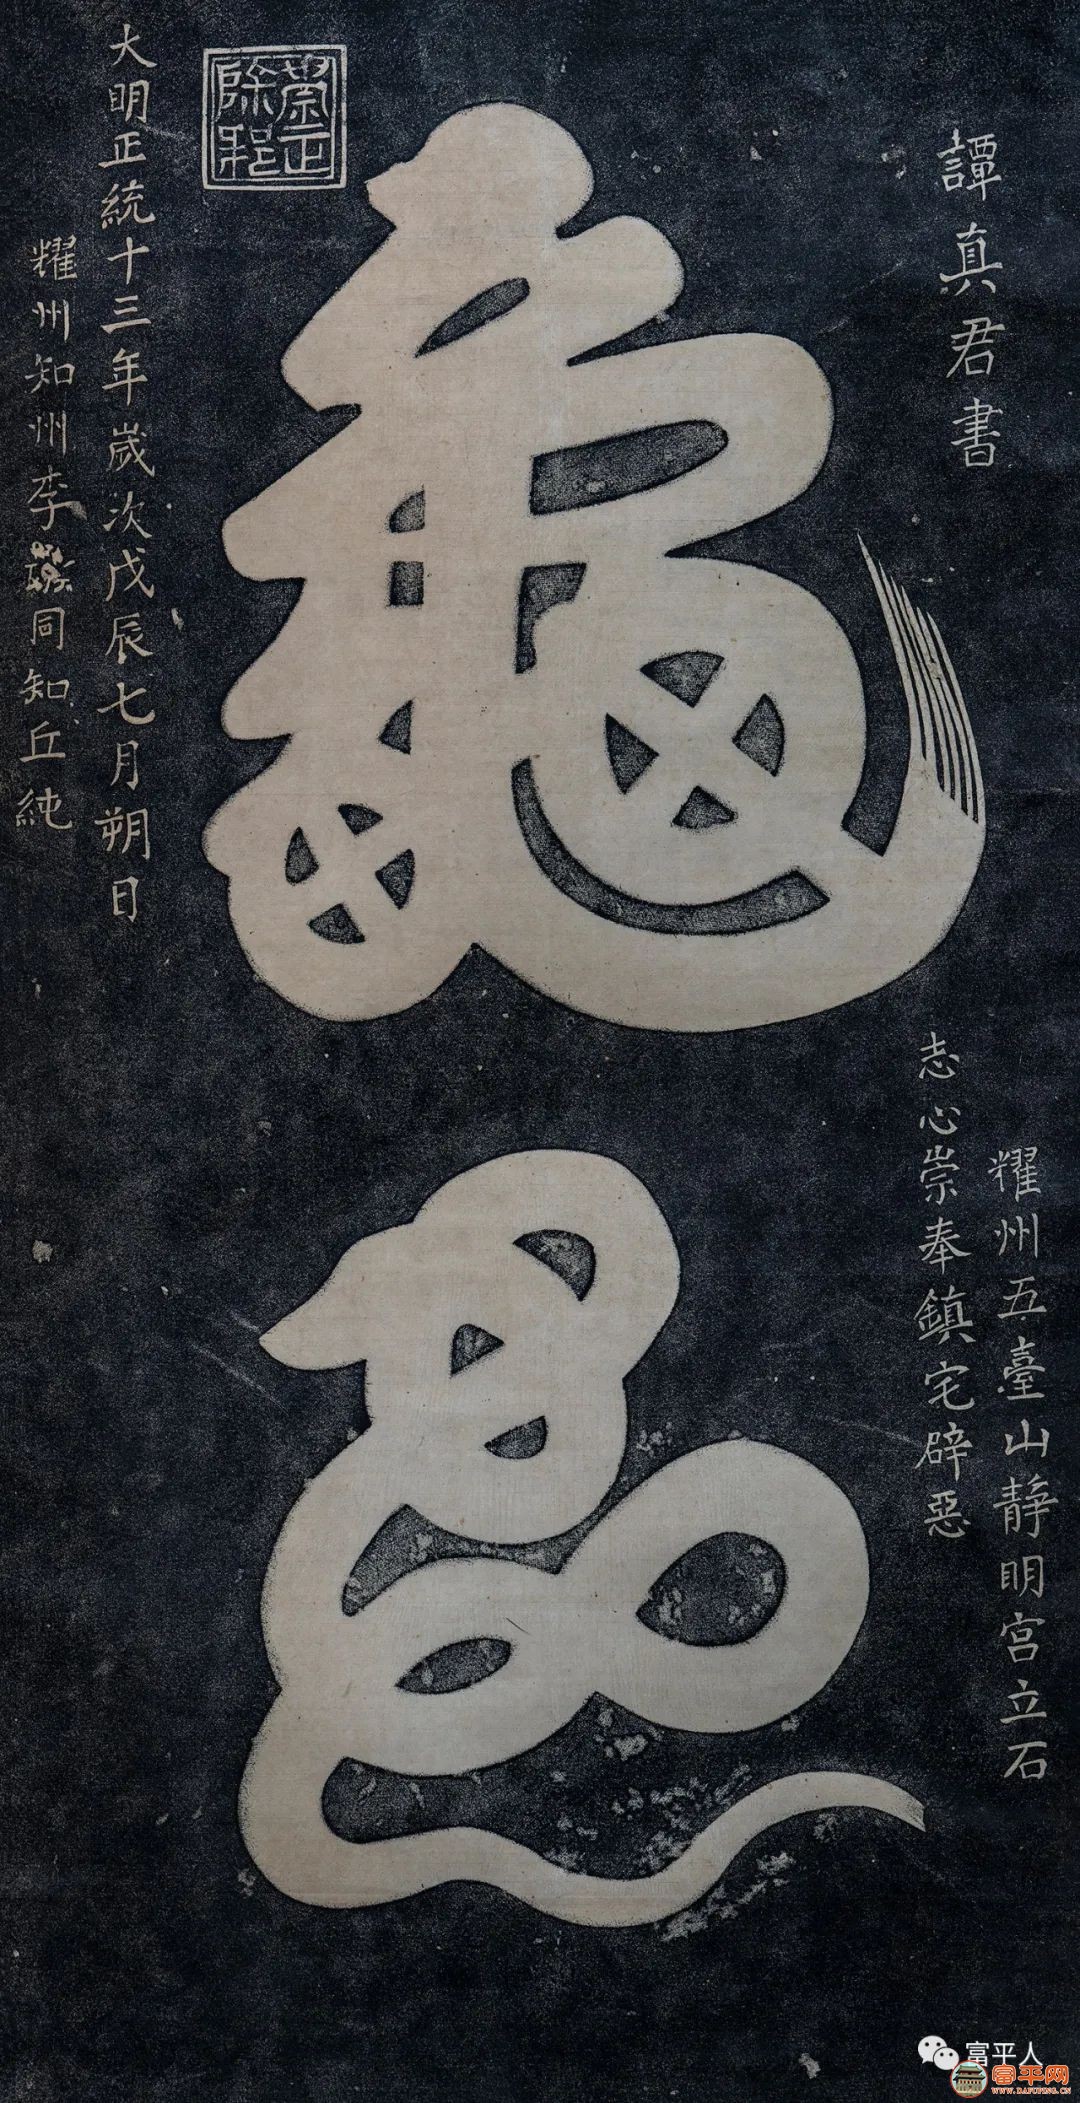 譚真君書
龜
蛇
耀州五臺山静明宫立石
志心崇奉鎮宅辟惡
崇正除邪
大明正統十三年歲次戊辰七月朔日
耀州知州李 同知丘純
富平人
富平网
WWW.DAFUPING.CN